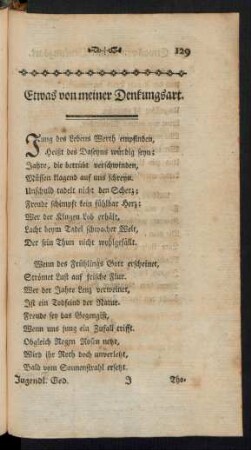 129
Etwas von meiner Denkungsart.
Jung des Lebens Werth empfinden,
Heißt des Daseyns würdig seyn:
Jahre, die betrübt verschwinden,
Müssen klagend auf uns schreyn.
Unschuld tadelt nicht den Scherz;
Freude schimpft kein fühlbar Herz:
Wer der Klugen Lob erhält,
Lacht beym Tadel schwacher Welt,
Der sein Thun nicht wohlgefällt.
Wenn des Frühlings Gott erscheinet,
Strömet Lust auf frische Flur.
Wer der Jahre Lenz verweinet,
Ist ein Todfeind der Natur.
Freude sey das Gegengift,
Wenn uns jung ein Zufall trifft.
Obgleich Regen Rosen netzt,
Wird ihr Roth doch unverletzt,
Bald vom Sonnenstrahl ersetzt.
Jugendl. Ged. J The-